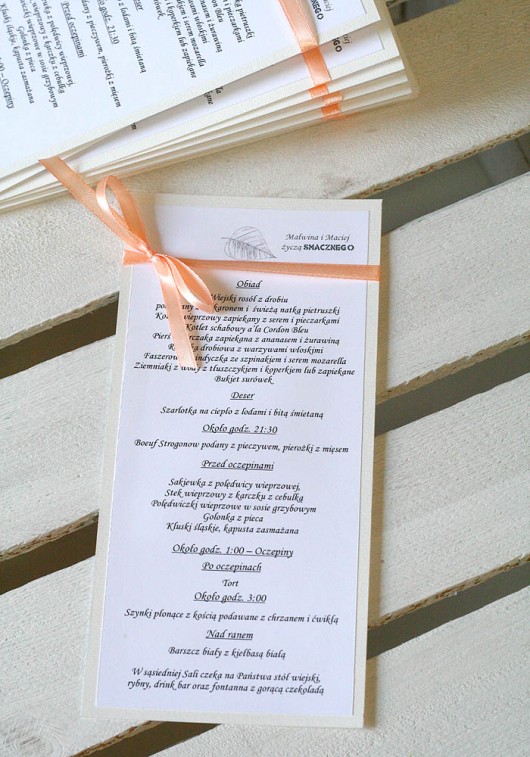 Malwina i Maciej
życzą SMACZNEGO
Obiad
Wiejski rosół z drobiu
z makaronem i świeżą natką pietruszki
wieprzowy zapiekany z serem i pieczarkami
Kotlet schabowy a'la Cordon Bleu
zapiekana z ananasem i żurawiną
drobiowa z warzywami włoskimi
indyczka ze szpinakiem i serem mozarella
Ziemniaki z wody z tłuszczykiem i koperkiem lub zapiekane
Bukiet surówek
Deser
Szarlotka na ciepło z lodami i bitą śmietaną
Około godz. 21:30
Boeuf Strogonow podany z pieczywem, pierożki z mięsem
Przed oczepinami
Sakiewka z polędwicy wieprzowej,
Stek wieprzowy z karczku z cebulką
Polędwiczki wieprzowe w sosie grzybowym
Golonka z pieca
Kluski śląskie, kapusta zasmażana
Około godz. 1:00 – Oczepiny
Po oczepinach
Tort
Około godz. 3:00
Szynki płonące z kością podawane z chrzanem i ćwikłą
Nad ranem
Barszcz biały z kiełbasą białą
W sąsiedniej Sali czeka na Państwa stół wiejski,
rybny, drink bar oraz fontanna z gorącą czekoladą